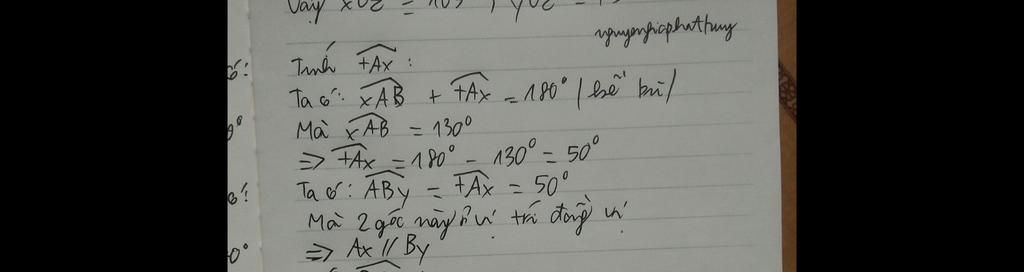 Vậy xOz = 105
nguyengiaphathuy
Tính tAx :
Ta có: xAB + tAx = 180° (kề bù)
Mà xAB = 130°
=> tAx = 180° - 130° = 50°
Ta có: ABy = tAx = 50°
Mà 2 góc này ở vị trí đồng vị
=> Ax // By